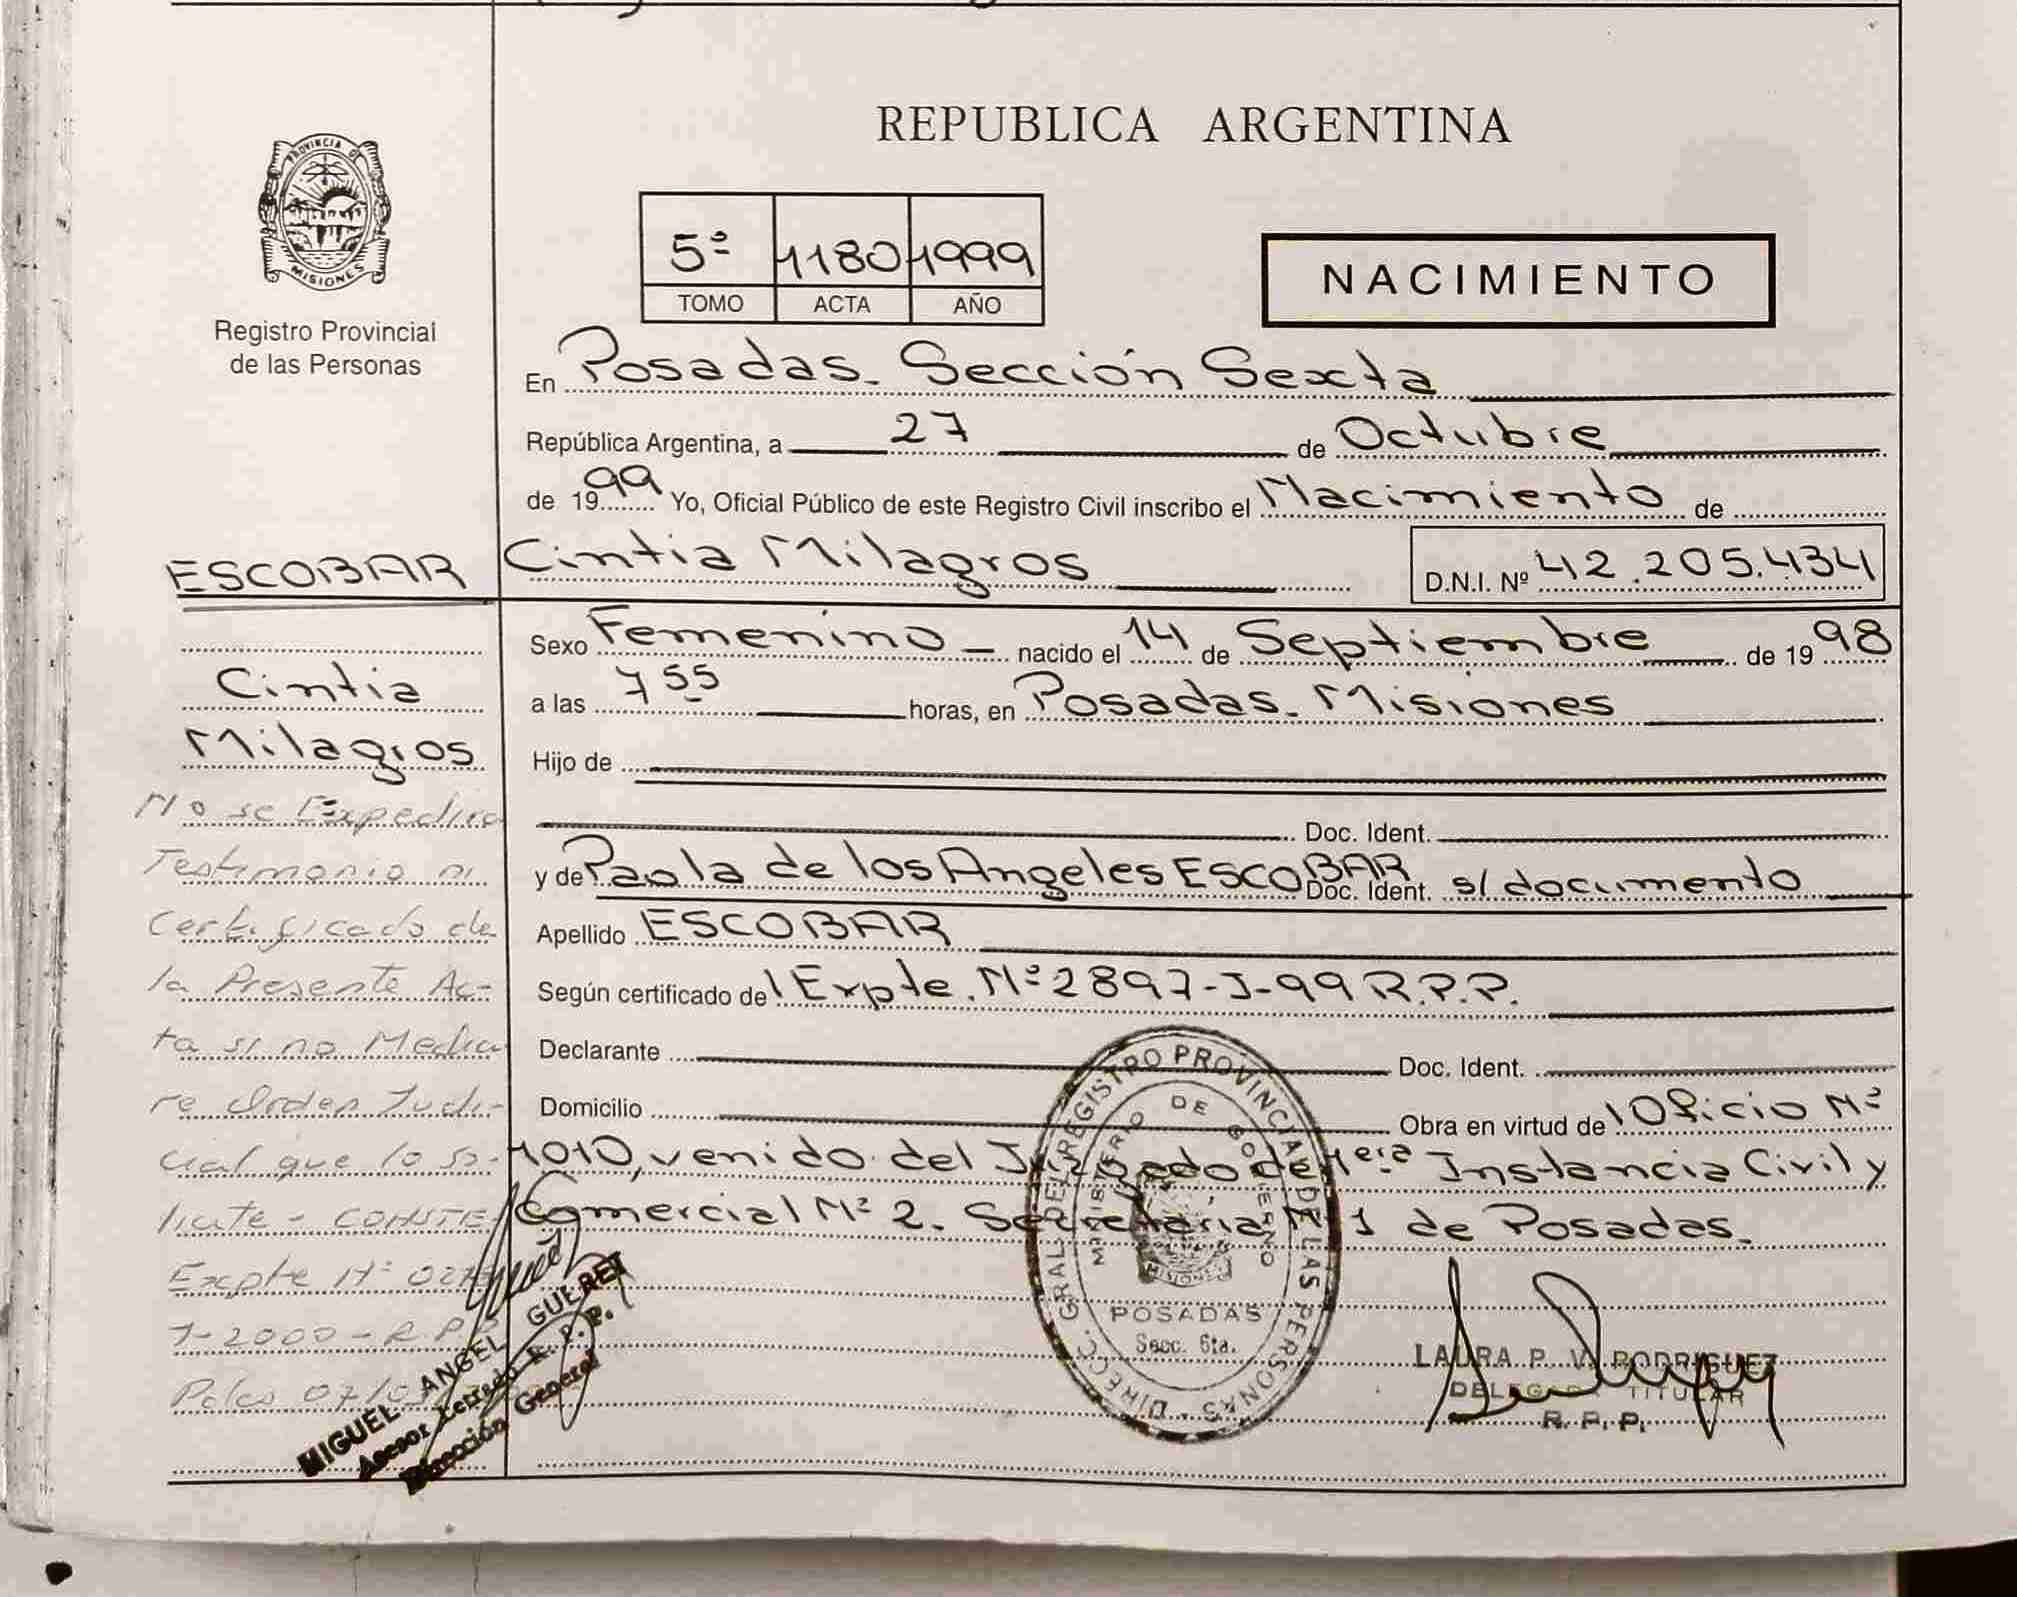 REPUBLICA ARGENTINA
PROVINCIA DE
MISIONES
Registro Provincial
de las Personas
5º 1180 1999
TOMO ACTA AÑO
NACIMIENTO
En Posadas. Sección Sexta
República Argentina, a 27 de Octubre
de 1999 Yo, Oficial Público de este Registro Civil inscribo el Nacimiento de
ESCOBAR Cintia Milagros D.N.I. Nº 42.205.434
Sexo Femenino nacido el 14 de Septiembre de 1998
a las 7 55 horas, en Posadas. Misiones
Hijo de
Doc. Ident.
y de Paola de los Angeles ESCOBAR Doc. Ident. s/documento
Apellido ESCOBAR
Según certificado del Expte. Nº 2897-J-99 R.P.P.
Declarante Doc. Ident.
Domicilio Obra en virtud del Oficio Nº
1010, venido del Juzgado de 1era Instancia Civil y
Comercial Nº 2. Secretaria Nº 1 de Posadas.
Cintia
Milagros
No se Expedira
Testimonio ni
Certificado de
la Presente Ac-
ta si no Media
re Orden Judi-
cial que lo so-
licite - CONSTE
Expte Nº
J-2000 - R.P.P.
Pdas 07/
MIGUEL ANGEL GUERET
Asesor Letrado R.P.P.
Dirección General
DIRECC. GRAL. DEL REGISTRO PROVINCIAL DE LAS PERSONAS
MINISTERIO DE GOBIERNO
MISIONES
POSADAS
Secc. 6ta.
LAURA P. V. RODRIGUEZ
DELEGADA TITULAR
R. P. P.